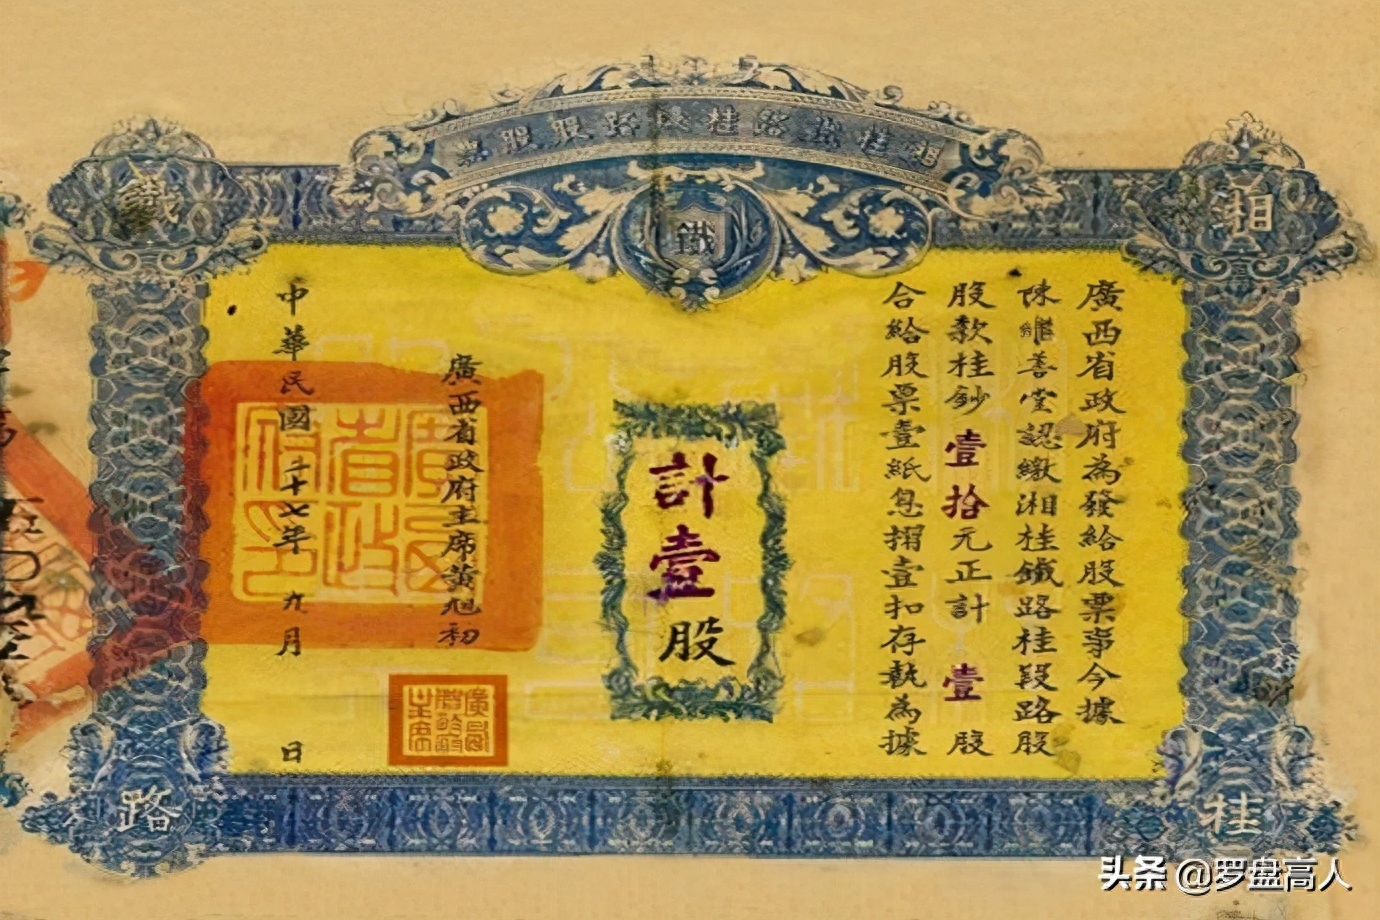 湘桂鐵路桂段路股股票
鐵
湘
桂
鐵
路
廣西省政府為發給股票事今據
陳繼善堂認繳湘桂鐵路桂段路股
股款桂鈔壹拾元正計壹股
合給股票壹紙息摺壹扣存執為據
計壹股
廣西省政府主席黃旭初
中華民國二十七年九月 日
廣西省政府印
头条 @罗盘高人